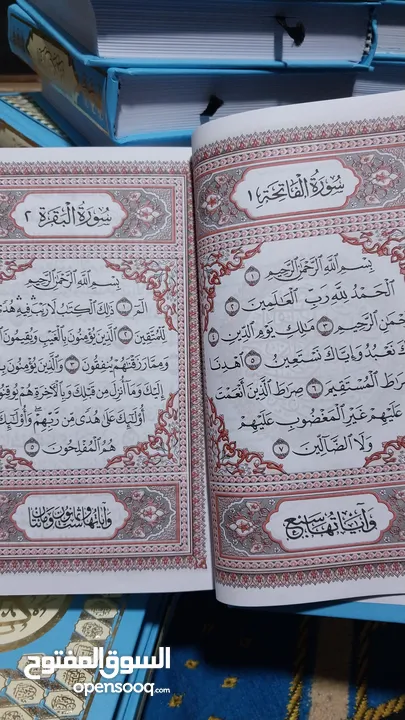 سُورَةُ الْفَاتِحَةِ ١
بِسْمِ اللَّهِ الرَّحْمَٰنِ الرَّحِيمِ ١
الْحَمْدُ لِلَّهِ رَبِّ الْعَٰلَمِينَ ٢
الرَّحْمَٰنِ الرَّحِيمِ ٣ مَٰلِكِ يَوْمِ الدِّينِ ٤
نَعْبُدُ وَإِيَّاكَ نَسْتَعِينُ ٥ اهْدِنَا
الصِّرَٰطَ الْمُسْتَقِيمَ ٦ صِرَٰطَ الَّذِينَ أَنْعَمْتَ
عَلَيْهِمْ غَيْرِ الْمَغْضُوبِ عَلَيْهِمْ
وَلَا الضَّالِّينَ ٧
وَآيَاتُهَا سَبْعٌ
سُورَةُ الْبَقَرَةِ ٢
بِسْمِ اللَّهِ الرَّحْمَٰنِ الرَّحِيمِ
الٓمٓ ١ ذَٰلِكَ الْكِتَٰبُ لَا رَيْبَ فِيهِ هُدًى
لِّلْمُتَّقِينَ ٢ الَّذِينَ يُؤْمِنُونَ بِالْغَيْبِ وَيُقِيمُونَ
وَمِمَّا رَزَقْنَٰهُمْ يُنفِقُونَ ٣ وَالَّذِينَ يُؤْمِنُونَ
إِلَيْكَ وَمَا أُنزِلَ مِن قَبْلِكَ وَبِالْآخِرَةِ هُمْ يُوقِنُونَ
أُولَٰئِكَ عَلَىٰ هُدًى مِّن رَّبِّهِمْ وَأُولَٰئِكَ
هُمُ الْمُفْلِحُونَ ٥
وَآيَاتُهَا سِتٌّ وَثَمَانُونَ وَمِائَتَانِ
السوق المفتوح
opensooq.com